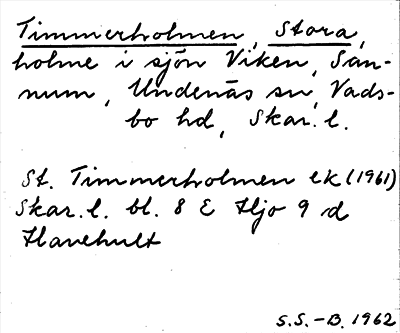 Timmerholmen, Stora,
holme i sjön Viken, San-
num, Undenäs sn, Vads-
bo hd, Skar. l.
St. Timmerholmen ek (1961)
Skar. l. bl. 8 E Hjo 9 d
Havehult
S.S.-B. 1962